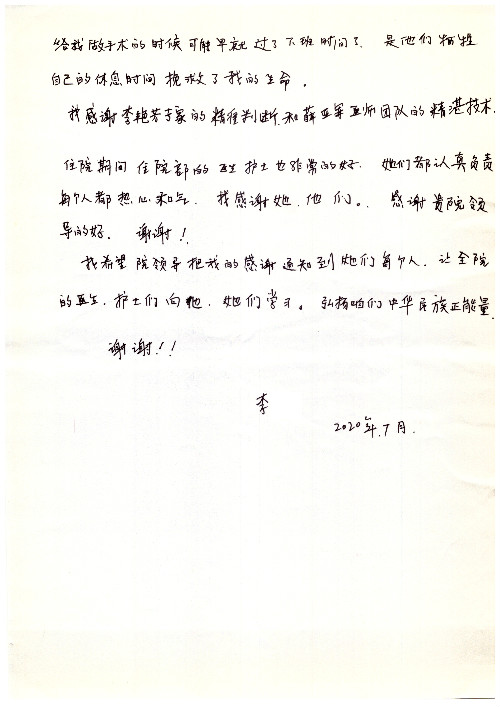 给我做手术的时候可能早就过了下班时间了。是他们牺牲
自己的休息时间挽救了我的生命。
我感谢李艳芳专家的精准判断和薛亚军医师团队的精湛技术.
住院期间住院部的医生护士也非常的好. 她们都认真负责
每个人都热心和气. 我感谢她.他们。. 感谢贵院领
导的好. 谢谢!
我希望院领导把我的感谢通知到她们每个人. 让全院
的医生.护士们向他.她们学习。弘扬咱们中华民族正能量.
谢谢!!
李
2020年.7月.